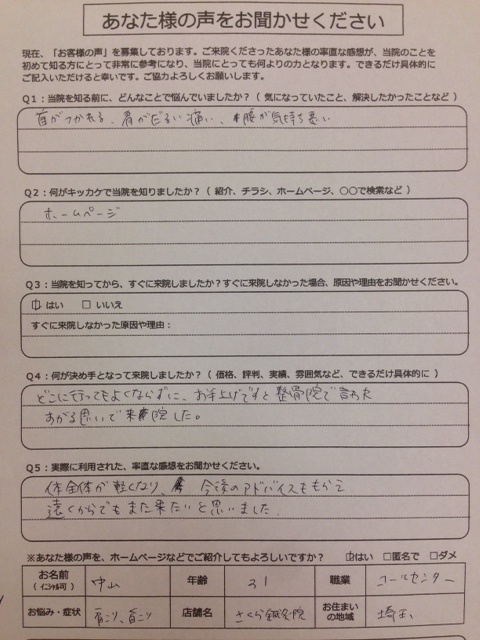 あなた様の声をお聞かせください
現在、「お客様の声」を募集しております。ご来院くださったあなた様の率直な感想が、当院のことを
初めて知る方にとって非常に参考になり、当院にとっても何よりの力となります。できるだけ具体的に
ご記入いただけると幸いです。ご協力よろしくお願いします。
Q1:当院を知る前に、どんなことで悩んでいましたか?( 気になっていたこと、解決したかったことなど )
首がつかれる、肩がだるい痛い、腰が気持ち悪い
Q2:何がキッカケで当院を知りましたか?( 紹介、チラシ、ホームページ、〇〇で検索など )
ホームページ
Q3:当院を知ってから、すぐに来院しましたか?すぐに来院しなかった場合、原因や理由をお聞かせください。
はい □ いいえ
すぐに来院しなかった原因や理由:
Q4:何が決め手となって来院しましたか?( 価格、評判、実績、雰囲気など、できるだけ具体的に )
どこに行ってもよくならずに、お手上げですと整骨院で言われ
すがる思いで来院した。
Q5:実際に利用された、率直な感想をお聞かせください。
体全体が軽くなり、今後のアドバイスももらえ
遠くからでもまた来たいと思いました
※あなた様の声を、ホームページなどでご紹介してもよろしいですか? はい □匿名で □ダメ
お名前 (イニシャル可) 中山 年齢 31 職業 コールセンター
お悩み・症状 肩こり、首こり 店舗名 さくら鍼灸院 お住まいの地域 埼玉